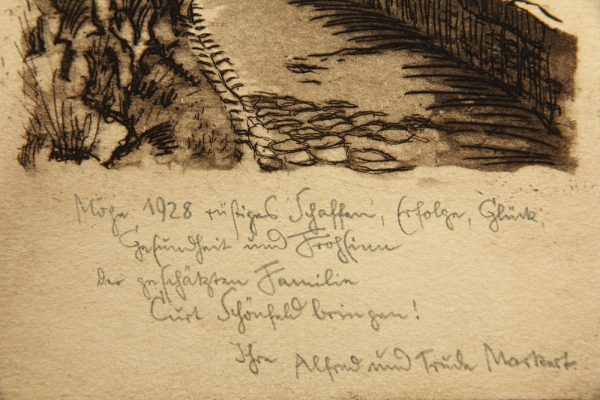 Möge 1928 rüstiges Schaffen, Erfolge, Glück,
Gesundheit und Frohsinn
der geschätzten Familie
Curt Schönfeld bringen!
Ihre Alfred und Trude Markert.